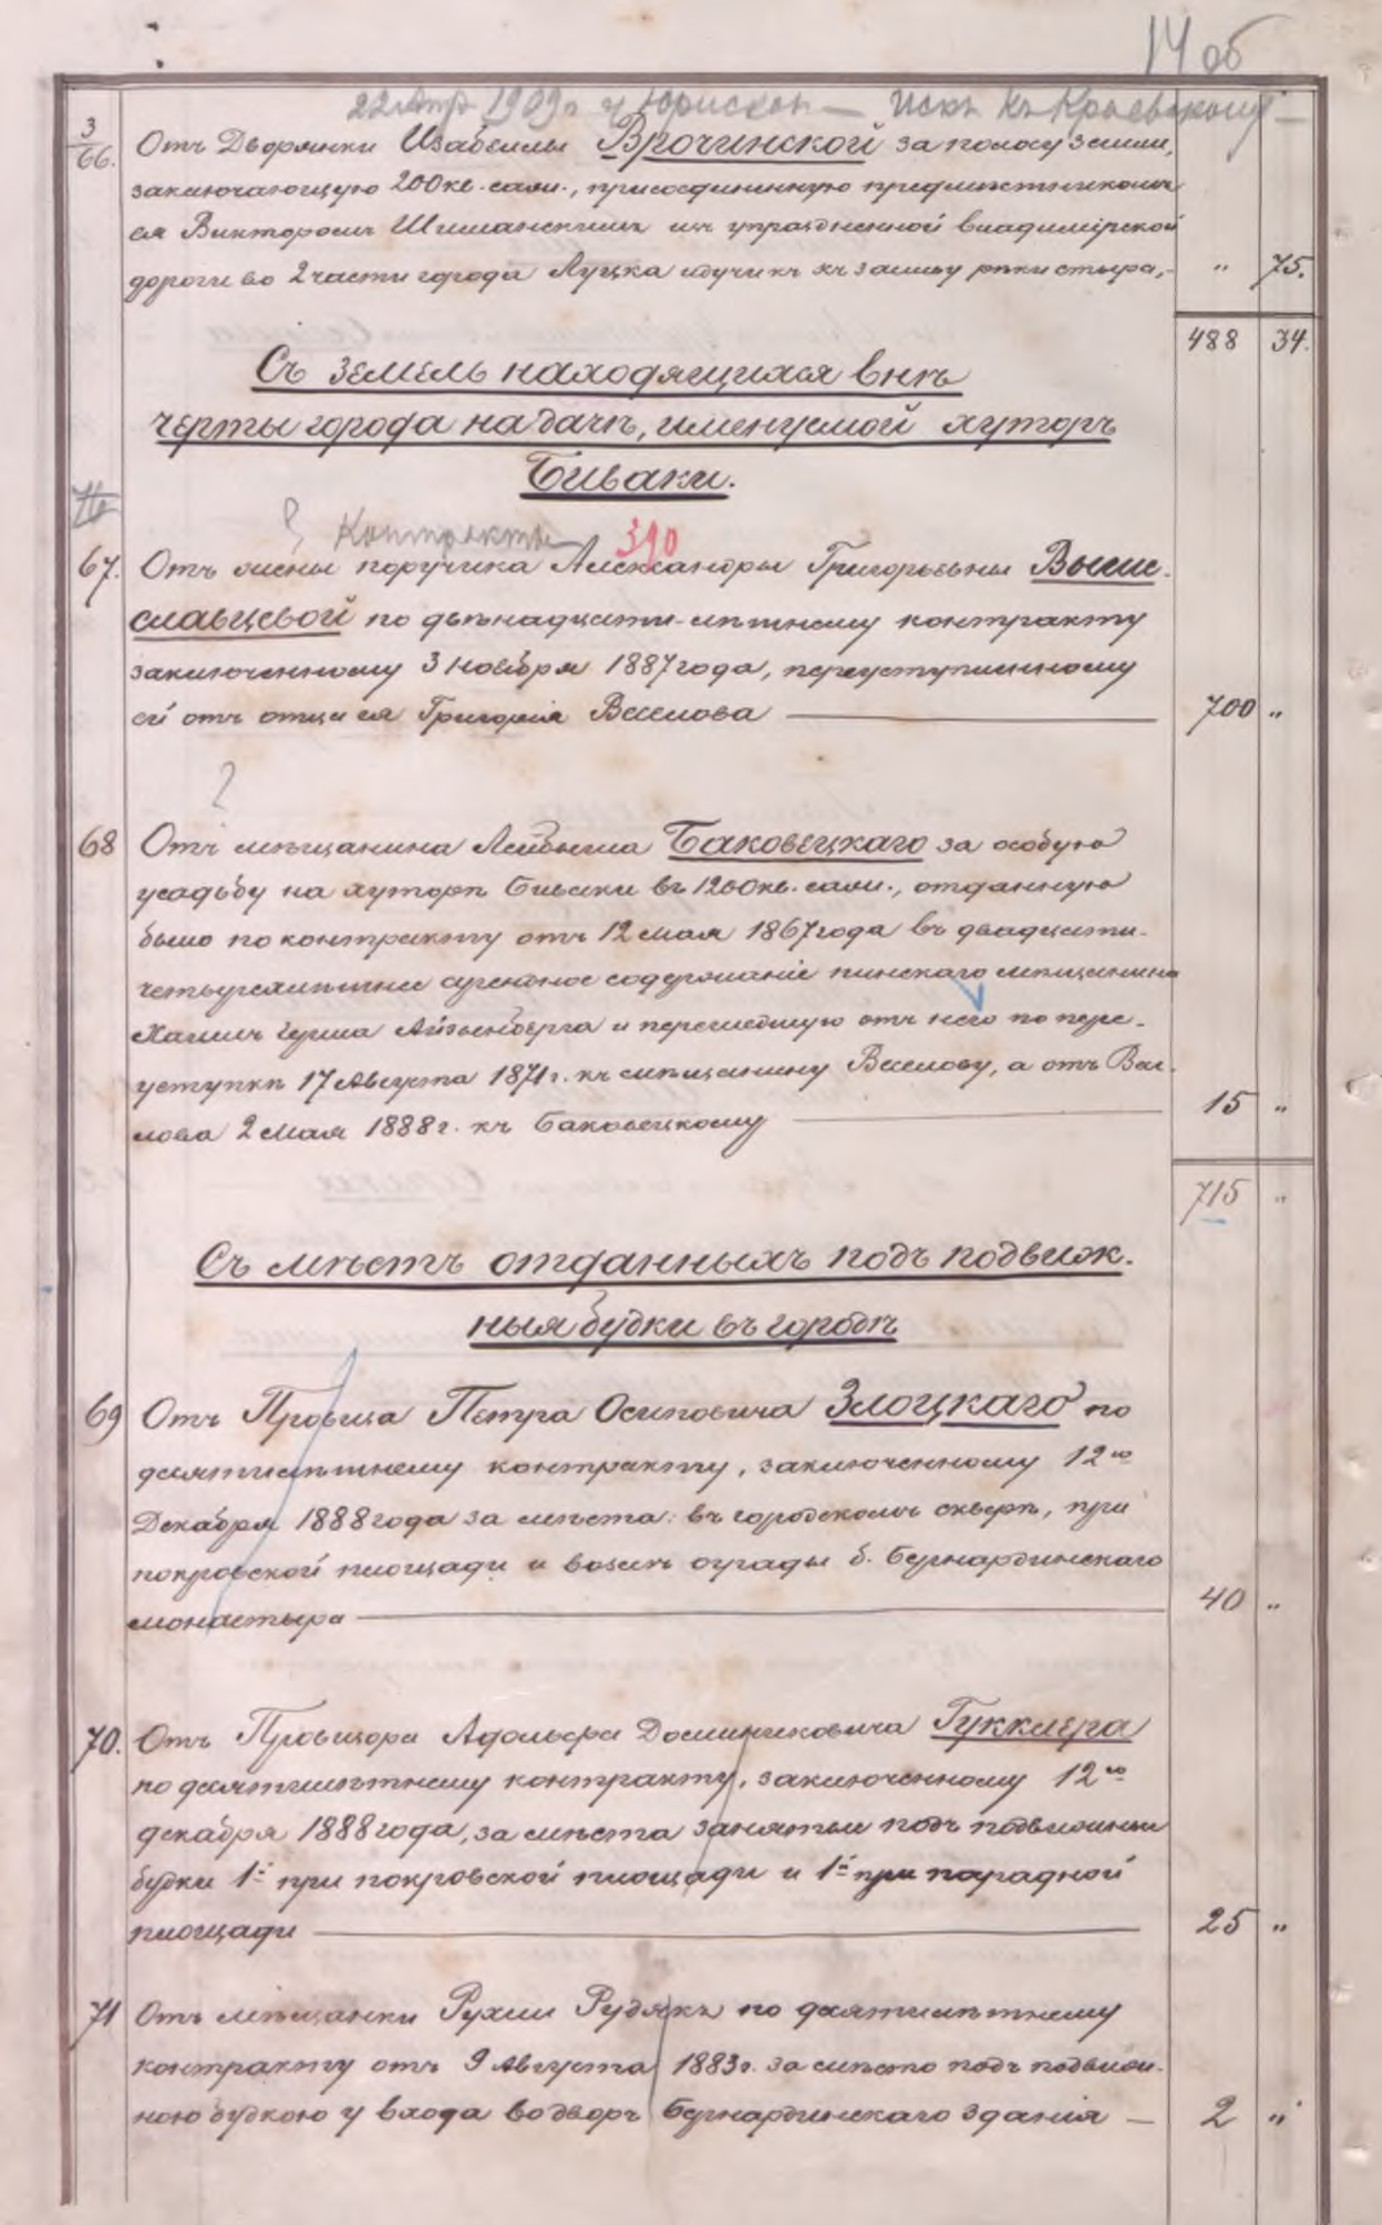 14 об
22 Апр 1909 г у Юрискон — Искъ къ Краевскому —
3/66. Отъ Дворянки Изабеллы Врочинской за полосу земли,
заключающую 200 кв. саж., присоединенную предмѣстникомъ
ея Викторомъ Шиманскимъ изъ упраздненной владимірской
дороги во 2 части города Луцка идучи къ заливу рѣки стыра, - „ 75.
488 34.
Съ земель находящихся внѣ
черты города на дачѣ, именуемой хуторъ
Биваки.
? Контракты 390
67. Отъ жены поручика Александры Григорьевны Выше-
славцевой по двѣнадцати-лѣтнему контракту
заключенному 3 ноября 1887 года, переуступленному
ей отъ отца ея Григорія Веселова — 700 „
?
68 Отъ мѣщанина Лейбыша Баковецкаго за особую
усадьбу на хуторѣ Биваки въ 1200 кв. саж., отданную
было по контракту отъ 12 мая 1867 года въ двадцати-
четырехлѣтнее арендное содержаніе пинскаго мѣщанина
Хаима Герша Айзенберга и перешедшую отъ него по пере-
уступкѣ 17 Августа 1871 г. къ мѣщанину Веселову, а отъ Весе-
лова 2 Мая 1888 г. къ Баковецкому — 15 „
715 „
Съ мѣстъ отданныхъ подъ подвиж-
ныя будки въ городѣ
69 Отъ Петра Осиповича Злоцкаго по
десятилѣтнему контракту, заключенному 12го
Декабря 1888 года за мѣста: въ городскомъ скверѣ, при
покровской площади и возлѣ ограды б. Бернардинскаго
монастыря — 40 „
70. Отъ Провизора Адольфа Доминиковича Гукклера
по десятилѣтнему контракту, заключенному 12го
декабря 1888 года, за мѣста занятыя подъ подвижныя
будки 1й при покровской площади и 1й при парадной
площади — 25 „
71 Отъ мѣщанки Рухли Рудякъ по десятилѣтнему
контракту отъ 9 Августа 1883 г. за мѣсто подъ подвиж-
ною будкою у входа во дворъ Бернардинскаго зданія — 2 „